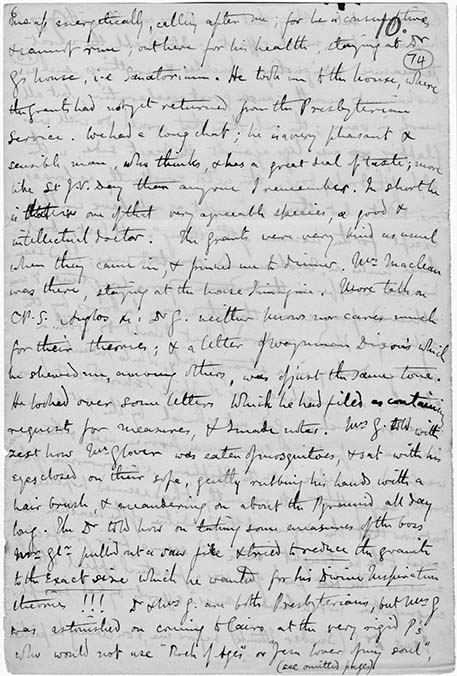 me up energetically, calling after me; for he is consumptive,
10.
& cannot run; out here for his health, staying at Dr
74
G's house, i.e. Sanatorium. He took me to the house, where
the Grants had not yet returned from the Presbyterian
service. We had a long chat; he is a very pleasant &
sensible man, who thinks, & has a great deal of taste; more
like St J.V. Day than anyone I remember. In short he
is one of that very agreeable species, a good &
intellectual doctor. The Grants were very kind as usual
when they came in, & pinned me to dinner. Mrs Maclean
was there, staying at the house. More talk on
C.P.S. Anglos &c! Dr G. neither knows nor cares much
for their theories; & a letter of Waynman Dixon's which
he shewed me, among others, was of just the same tone.
He looked over some letters which he had filed as containing
requests for measures, & I made notes. Mrs G. told with
zest how Mr Glover was eaten of mosquitoes, & sat with his
eyes closed on their sofa, gently rubbing his hands with a
hair brush, & meandering on about the Pyramid all day
long. The Dr told how on taking some measures of the boss
Mr Gl. pulled out a saw file & tried to reduce the granite
to the exact size which he wanted for his Divine Inspiration
theories !!! Dr & Mrs G. are both Presbyterians, but Mrs G
was astonished on coming to Cairo at the very rigid P's
who would not use "Rock of Ages" or "Jesu lover of my soul",
(see omitted pages)